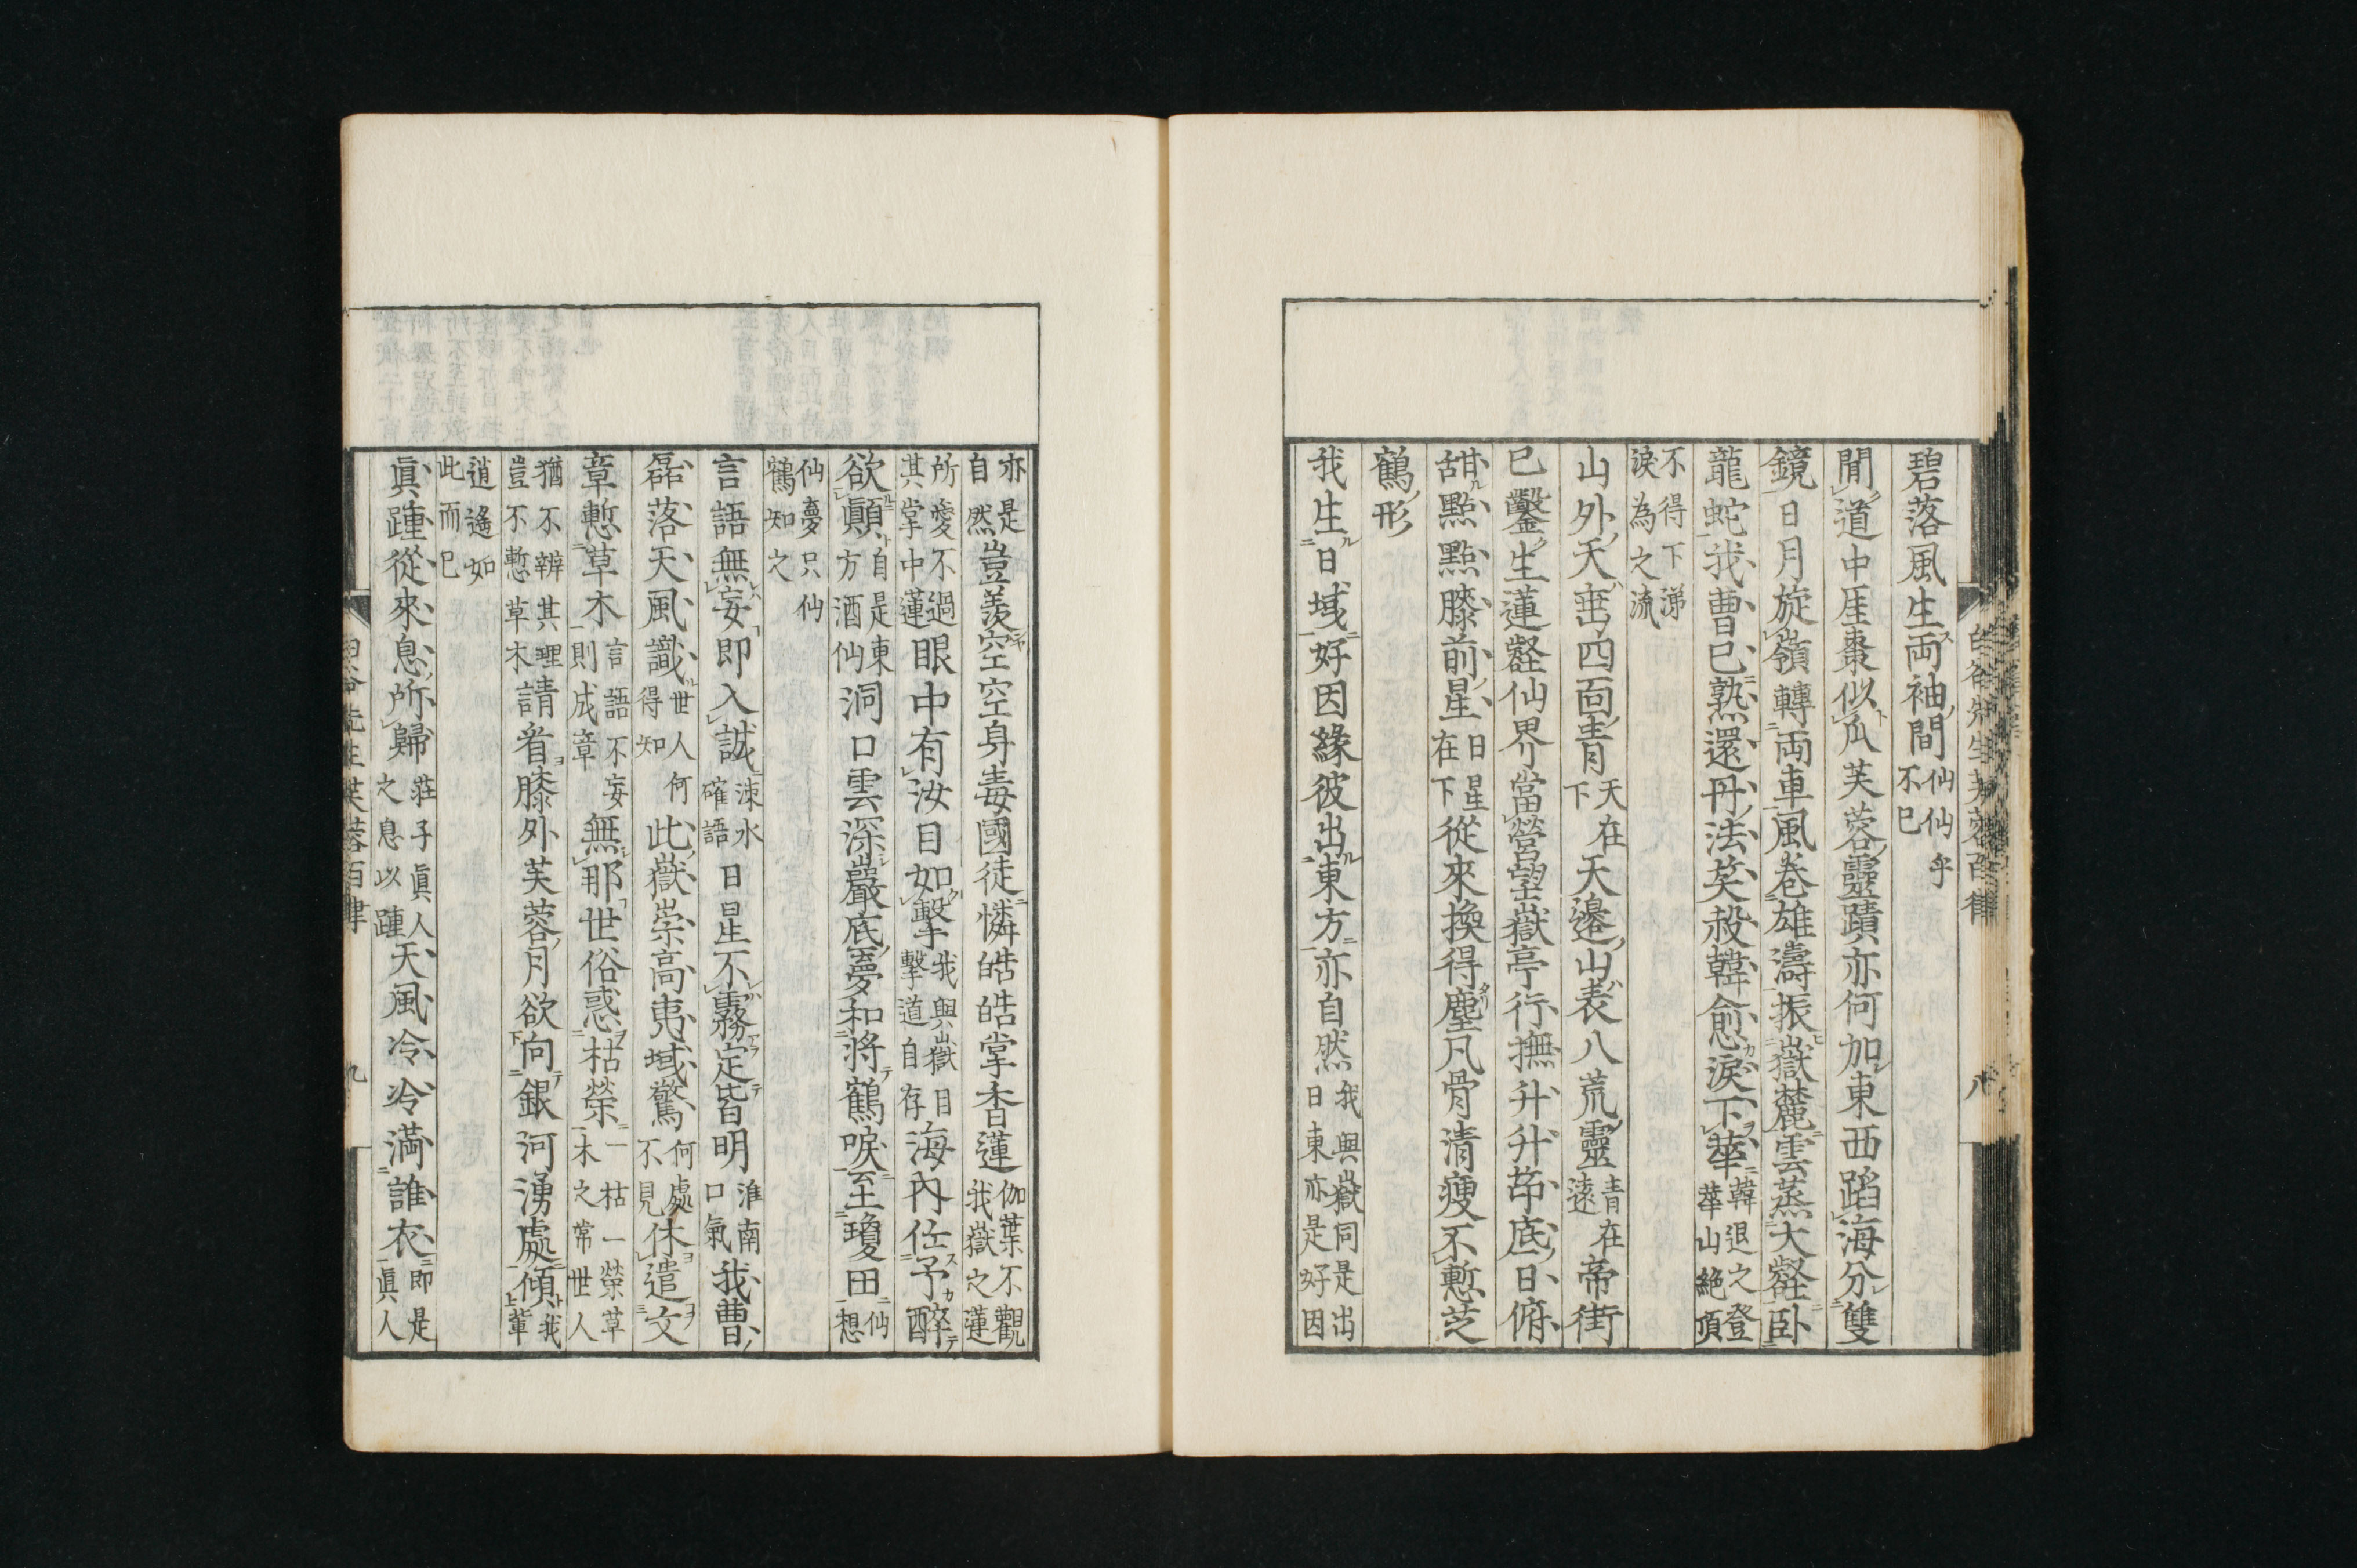 碧落風生両袖間仙仙乎不已
聞道中厓棗似瓜芙蓉靈蹟亦何加東西蹈海分雙
鏡日月旋嶺轉両車風卷雄濤振嶽麓雲蒸大壑卧
龍蛇我曹已熟還丹法笑殺韓愈淚下華韓退之登華山絶頂
不得下涕淚為之流
山外天峦四面青天在下天邊山表八荒靈青在遠帝街
已鑿生蓮壑仙界當營望嶽亭行撫升升帝底日俯
甜點點膝前星日星在下從來換得塵凡骨清瘦不慙芝
鶴形
我生日域好因緣彼出東方亦自然我與嶽同是出日東亦是好因
亦是自然豈羨空空身毒國徒憐皓皓掌杳蓮伽葉不觀我嶽之蓮
所愛不過其掌中蓮眼中有汝目如擊我與嶽目擊道自存海內任予醉
欲顛自是東方酒仙洞口雲深巖底夢和將鶴唳至瓊田仙想
仙夢只仙鶴知之
言語無妄即入誠涑水確語日星不霧定皆明淮南口氣我曹
磊落天風識世人何得知此嶽崇高夷域驚何處不見休遣文
章慙草木言語不妄則成章無那世俗惑枯榮一枯一榮草木之常世人
猶不辨其理豈不慙草木請看膝外芙蓉月欲向銀河湧處傾我輩
逍遙如此而已
眞踵從來息所歸莊子眞人之息以踵天風冷冷滿誰衣即是眞人
先生芙蓉百律
九
八